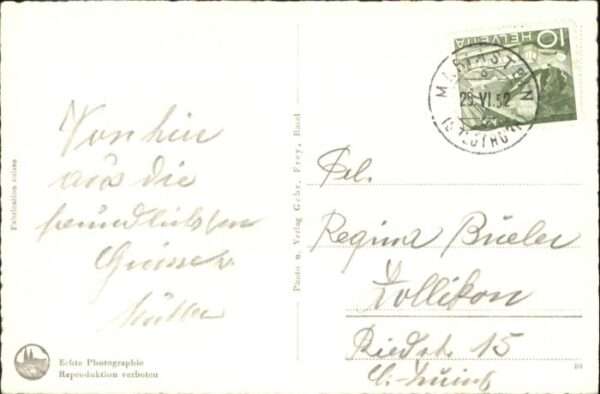 Fabrication suisse
Von hier
aus die
freundlichsten
Grüsse v.
Echte Photographie
Reproduktion verboten
Photo u. Verlag Gebr. Frey, Basel
10
HELVETIA
MARIASTEIN
25.VI.52
(SOLOTHURN)
Frl.
Regina Büeler
Zollikon
Riedstr. 15